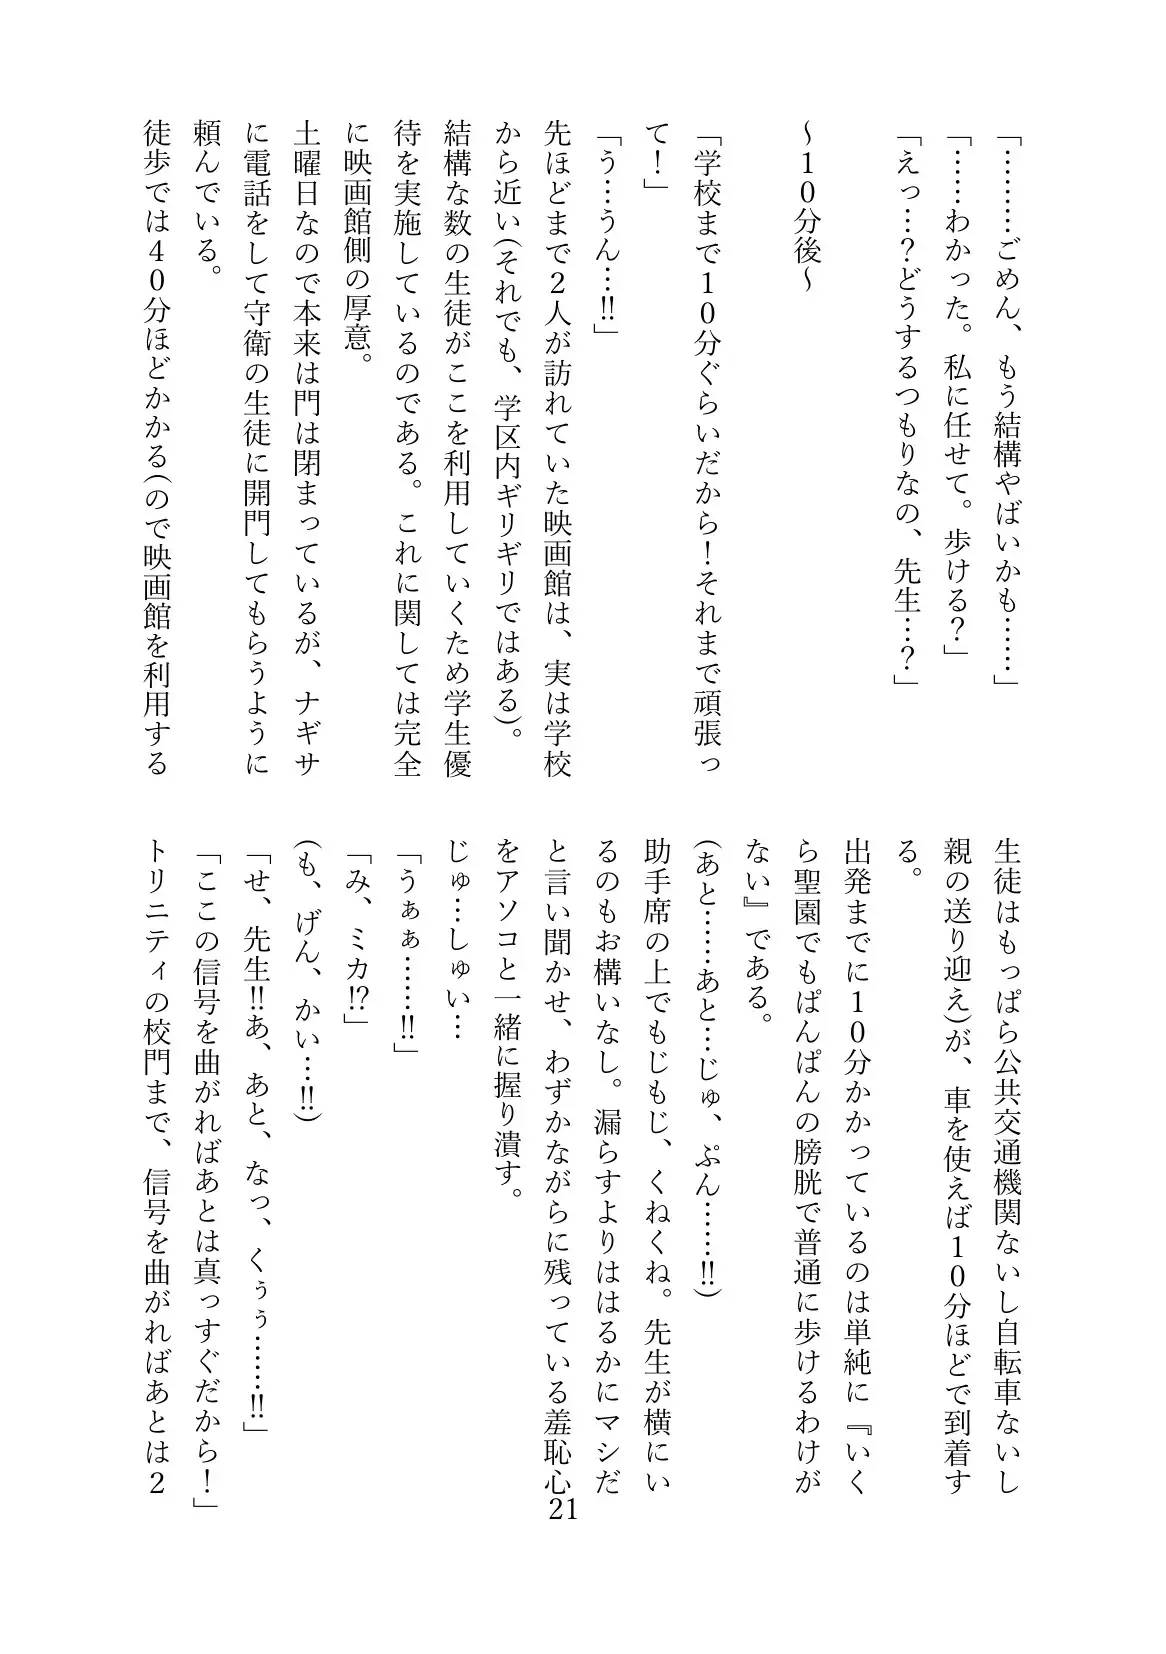 「………ごめん、もう結構やばいかも……」
「……わかった。私に任せて。歩ける？」
「えっ…？どうするつもりなの、先生…？」
～10分後～
「学校まで10分ぐらいだから！それまで頑張っ
て！」
「う…うん…‼」
先ほどまで2人が訪れていた映画館は、実は学校
から近い(それでも、学区内ギリギリではある)。
結構な数の生徒がここを利用していくため学生優
待を実施しているのである。これに関しては完全
に映画館側の厚意。
土曜日なので本来は門は閉まっているが、ナギサ
に電話をして守衛の生徒に開門してもらうように
頼んでいる。
徒歩では40分ほどかかる(ので映画館を利用する
生徒はもっぱら公共交通機関ないし自転車ないし
親の送り迎え)が、車を使えば10分ほどで到着す
る。
出発までに10分かかっているのは単純に『いく
ら聖園でもぱんぱんの膀胱で普通に歩けるわけが
ない』である。
(あと……あと…じゅ、ぷん……‼)
助手席の上でもじもじ、くねくね。先生が横にい
るのもお構いなし。漏らすよりははるかにマシだ
と言い聞かせ、わずかながらに残っている羞恥心
をアソコと一緒に握り潰す。
じゅ…しゅい…
「うぁぁ……‼」
「み、ミカ⁉」
(も、げん、かい…‼)
「せ、先生‼あ、あと、なっ、くぅぅ……‼」
「ここの信号を曲がればあとは真っすぐだから！」
トリニティの校門まで、信号を曲がればあとは2
21